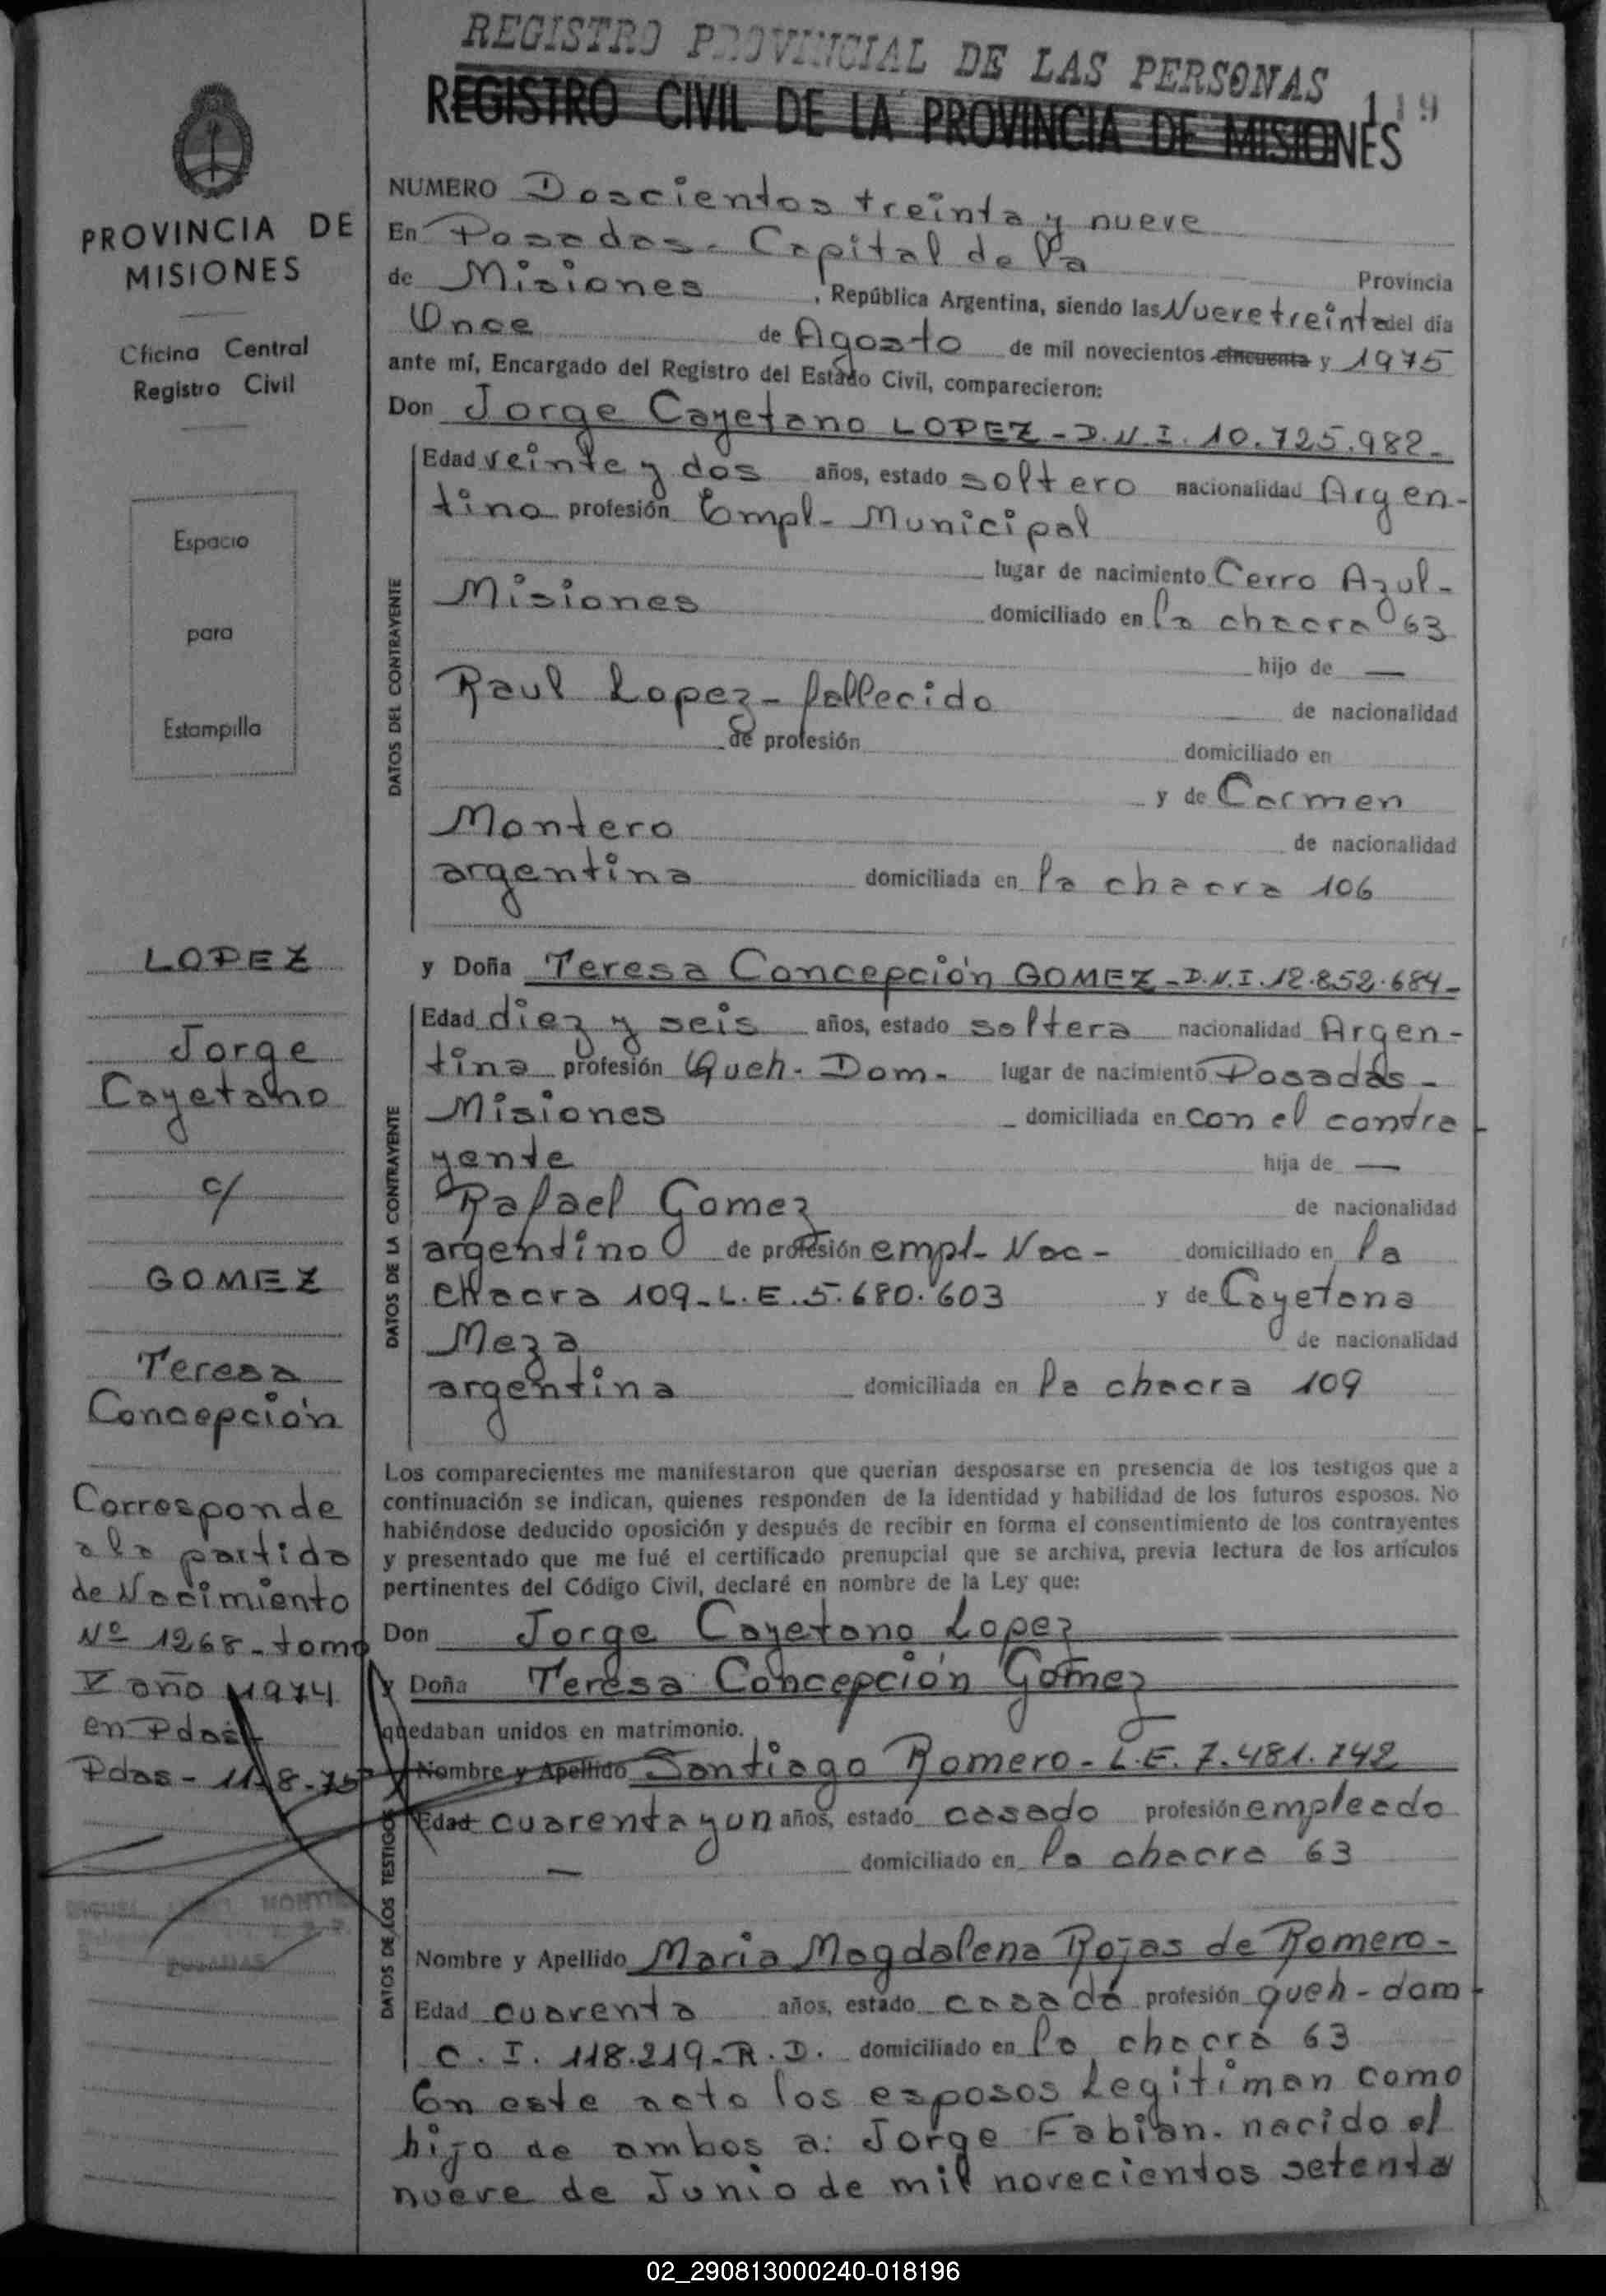 REGISTRO PROVINCIAL DE LAS PERSONAS
REGISTRO CIVIL DE LA PROVINCIA DE MISIONES
119
PROVINCIA DE
MISIONES
Oficina Central
Registro Civil
Espacio
para
Estampilla
LOPEZ
Jorge
Cayetano
c/
GOMEZ
Teresa
Concepción
Corresponde
a la partida
de Nacimiento
Nº 1268 - tomo
V año 1974
en Pdas
Pdas - 11-8-75
NUMERO Doscientos treinta y nueve
En Posadas - Capital de la Provincia
de Misiones, República Argentina, siendo las Nueve treinta del día
Once de Agosto de mil novecientos cincuenta y 1975
ante mí, Encargado del Registro del Estado Civil, comparecieron:
Don Jorge Cayetano LOPEZ - D.N.I. 10.725.982 -
DATOS DEL CONTRAYENTE
Edad veinte y dos años, estado soltero nacionalidad Argen-
tino profesión Empl- Municipal
lugar de nacimiento Cerro Azul -
Misiones domiciliado en la chacra 63
hijo de —
Raul Lopez - fallecido de nacionalidad
de profesión domiciliado en
y de Carmen
Montero de nacionalidad
argentina domiciliada en la chacra 106
y Doña Teresa Concepción GOMEZ - D.N.I. 12.852.684 -
DATOS DE LA CONTRAYENTE
Edad diez y seis años, estado soltera nacionalidad Argen-
tina profesión Queh- Dom- lugar de nacimiento Posadas -
Misiones domiciliada en con el contra
yente hija de —
Rafael Gomez de nacionalidad
argentino de profesión empl- Nac - domiciliado en la
chacra 109 - L.E. 5.680.603 y de Cayetana
Meza de nacionalidad
argentina domiciliada en la chacra 109
Los comparecientes me manifestaron que querían desposarse en presencia de los testigos que a
continuación se indican, quienes responden de la identidad y habilidad de los futuros esposos. No
habiéndose deducido oposición y después de recibir en forma el consentimiento de los contrayentes
y presentado que me fué el certificado prenupcial que se archiva, previa lectura de los artículos
pertinentes del Código Civil, declaré en nombre de la Ley que:
Don Jorge Cayetano Lopez
y Doña Teresa Concepción Gomez
quedaban unidos en matrimonio.
DATOS DE LOS TESTIGOS
Nombre y Apellido Santiago Romero - L.E. 7.481.742
Edad cuarenta y un años, estado casado profesión empleado
— domiciliado en la chacra 63
Nombre y Apellido Maria Magdalena Rojas de Romero -
Edad cuarenta años, estado casada profesión queh - dom -
C.I. 118.219 - R.D. domiciliado en la chacra 63
En este acto los esposos Legitiman como
hijo de ambos a: Jorge Fabian - nacido el
nueve de Junio de mil novecientos setenta
02_290813000240-018196